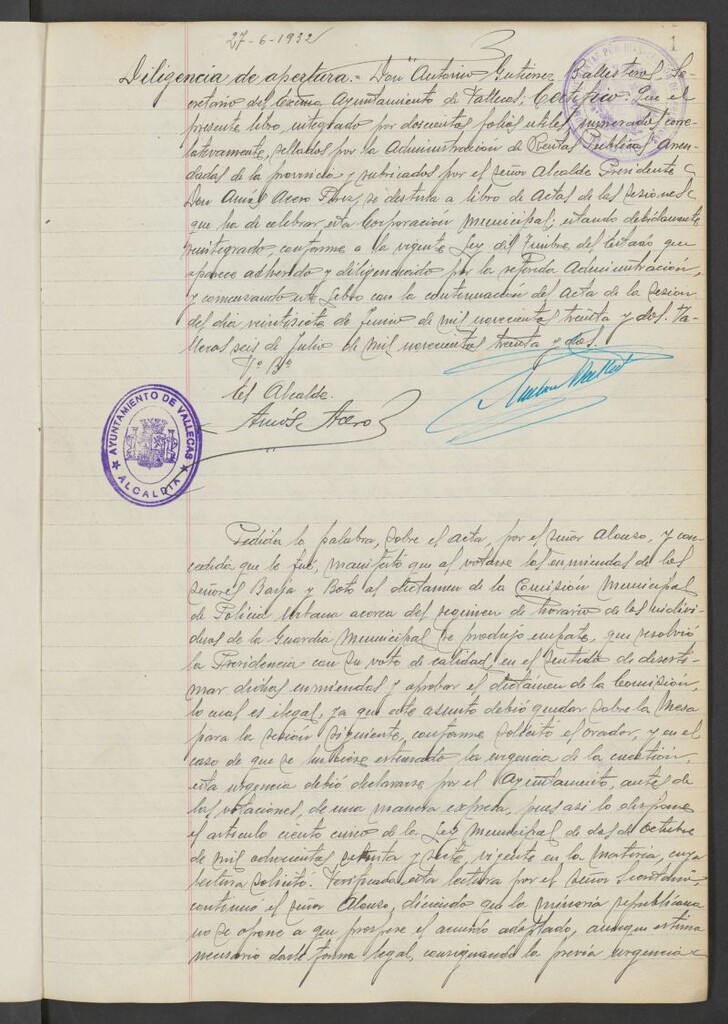 27-6-1932
1
Diligencia de apertura.= Don Antonio Gutierrez Ballesteros, Se-
cretario del Excmo Ayuntamiento de Vallecas, Certifico: Que el
presente libro, integrado por doscientos folios utiles, numerados corre-
lativamente, sellados por la Administracion de Rentas Publicas Arren-
dadas de la provincia y rubricados por el señor Alcalde Presidente
Don Amós Acero Pérez, se destina a libro de Actas de las sesiones
que ha de celebrar esta Corporacion Municipal; estando debidamente
reintegrado conforme a la vigente Ley del Timbre del Estado que
aparece adherido y diligenciado por la referida Administración,
y comenzando este Libro con la continuación del acta de la sesion
del dia veintisiete de Junio de mil novecientos treinta y dos. Va-
llecas seis de Julio de mil novecientos treinta y dos.
Vº Bº
El Alcalde.
Amós Acero
AYUNTAMIENTO DE VALLECAS
ALCALDIA
Pedida la palabra, sobre el acta, por el señor Alonso, y con-
cedida que le fué, manifestó que al votarse las enmiendas de los
señores Barja y Boto al dictamen de la Comisión Municipal
de Policia Urbana acerca del regimen de horario de los indivi-
duos de la Guardia Municipal se produjo empate, que resolvió
la Presidencia con su voto de calidad, en el sentido de desesti-
mar dichas enmiendas y aprobar el dictámen de la Comisión,
lo cual es ilegal, ya que este asunto debió quedar sobre la Mesa
para la sesión siguiente, conforme solicitó el orador, y en el
caso de que se hubiese estimado la urgencia de la cuestión,
esta urgencia debió declararse por el Ayuntamiento, antes de
las votaciones, de una manera expresa, pues asi lo dispone
el articulo ciento cinco de la Ley Municipal de dos de Octubre
de mil ochocientos setenta y siete, vigente en la materia, cuya
lectura solicitó. Verificada esta lectura por el señor Secretario,
continuó el señor Alonso, diciendo que la minoria republicana
no se opone a que prospere el acuerdo adoptado, aunque estima
necesario darle forma legal, consignando la previa urgencia